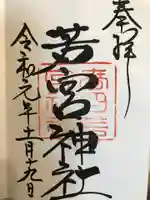 奉拝
若宮神社
令和元年十一月十九日